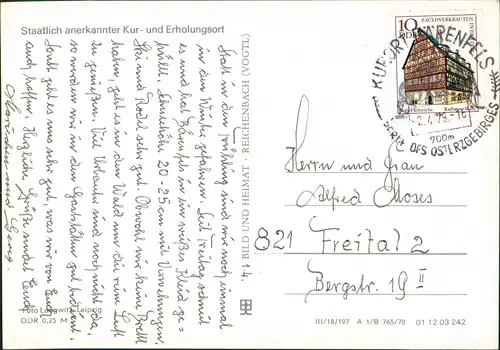 Staatlich anerkannter Kur- und Erholungsort
Statt in den Frühling sind wir noch einmal
in den Winter gefahren. Seit Freitag schneit
es und hat Bärenfels in ein weißes Kleid ge-
hüllt. Schneehöhe 20-25 cm mit Verwehungen.
Ski und Rodel sehr gut. Obwohl wir keine Bretter
haben, geht es in den Wald um die reine Luft
zu genießen. Viel Urlauber sind noch nicht da,
so werden wir in den Gaststätten gut bedient.
Sonst geht es uns sehr gut, was wir von Euch
auch hoffen. Herzliche Grüße sendet Euch
und Georg.
1.4.
Foto Leipzig
DDR 0,25 M
BILD UND HEIMAT · REICHENBACH (VOGTL)
10
DDR
FACHWERKBAUTEN
KURORT BÄRENFELS
2.4.79-16
700m
PERLE DES OSTERZGEBIRGES
Herrn und Frau
Alfred Moses
821 Freital 2
Bergstr. 19 II
III/18/197 A 1/B 765/78 01 12 03 242